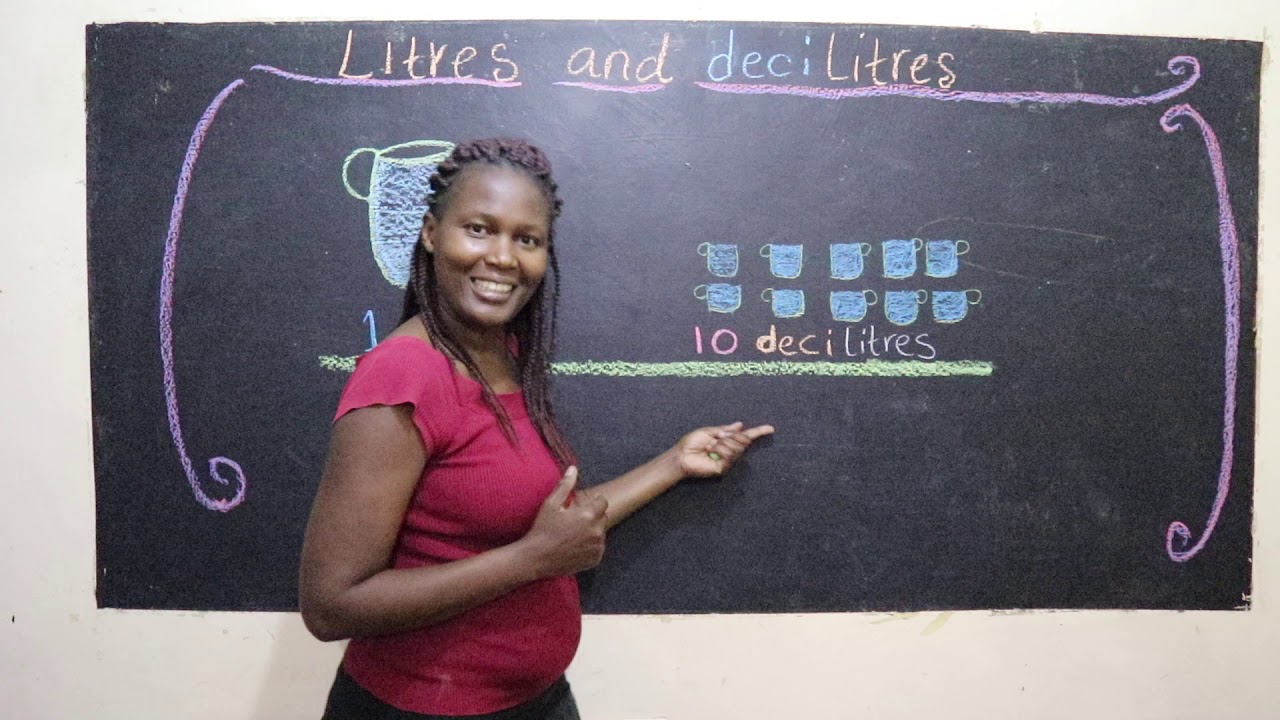 Litres and decilitres
1
10 decilitres